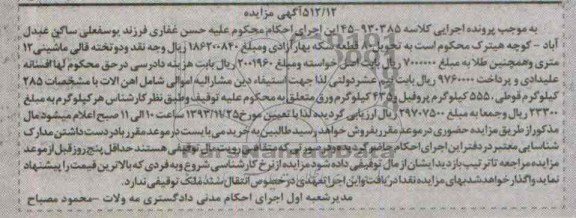 ۵۱۲/۱۲آگهی مزایده
به موجب پرونده اجرایی کلاسه ۹۳۰۳۸۵-۴۵ این اجرای احکام محکوم علیه حسن غفاری فرزند یوسفعلی ساکن عبدل
آباد - کوچه هیترک محکوم است به تحویل ۸۰ قطعه سکه بهار آزادی ومبلغ ۱۸۶۲۰۰۸۴۰ ریال وجه نقد ودو تخته قالی ماشینی ۱۲
متری وهمچنین طلا به مبلغ ۷۰۰۰۰۰۰ ریال بابت اصل خواسته ومبلغ ۲۰۰۱۹۶۰ ریال بابت هزینه دادرسی در حق محکوم لها افسانه
علیدادی و پرداخت ۹۷۶۰۰۰۰ ریال بابت نیم عشر دولتی لذا جهت استیفاء دین مشارالیه اموالی شامل آهن آلات با مشخصات ۲۸۵
کیلوگرم قوطی، ۵۵۵ کیلوگرم پروفیل و ۴۳۵ کیلوگرم ورق متعلق به محکوم علیه توقیف وطبق نظر کارشناس هر کیلوگرم به مبلغ
۲۳۳۰۰ ریال وجمعا به مبلغ ۲۹۷۰۷۵۰۰ ریال ارزیابی گردیده لذا با تعیین مورخ ۱۳۹۳/۱۱/۲۵ ساعت ۱۰ الی ۱۱ صبح اعلام میشود مال
مذکور از طریق مزایده حضوری در موعد مقرر بفروش خواهد رسید طالبین به خرید می بایست در موعد مقرر با در دست داشتن مدارک
شناسایی معتبر در دفتر این اجرای احکام حاضر گردند ودر صورتی که متقاضی رویت مال توقیفی هستند حداقل پنج روز قبل از موعد
مزایده مراجعه تا ترتیب بازدید ایشان از مال توقیفی داده شود مزایده از نرخ کارشناسی شروع وبه فردی که بالاترین قیمت را پیشنهاد
نماید واگذار خواهد شد بهای مزایده نقدا دریافت واین اجرا تعهدی در خصوص انتقال سند ملک توقیفی ندارد.
مدیر شعبه اول اجرای احکام مدنی دادگستری مه ولات - محمود مصباح